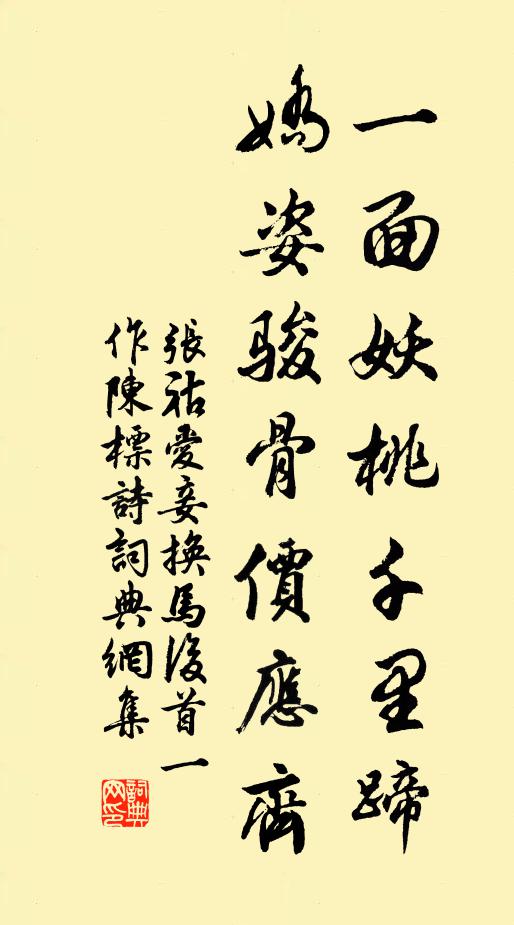 一面妖桃千里蹄
嬌姿駿骨價應齊
張祜愛妾換馬後首一
作陳標詩詞典網集
詞典
网印